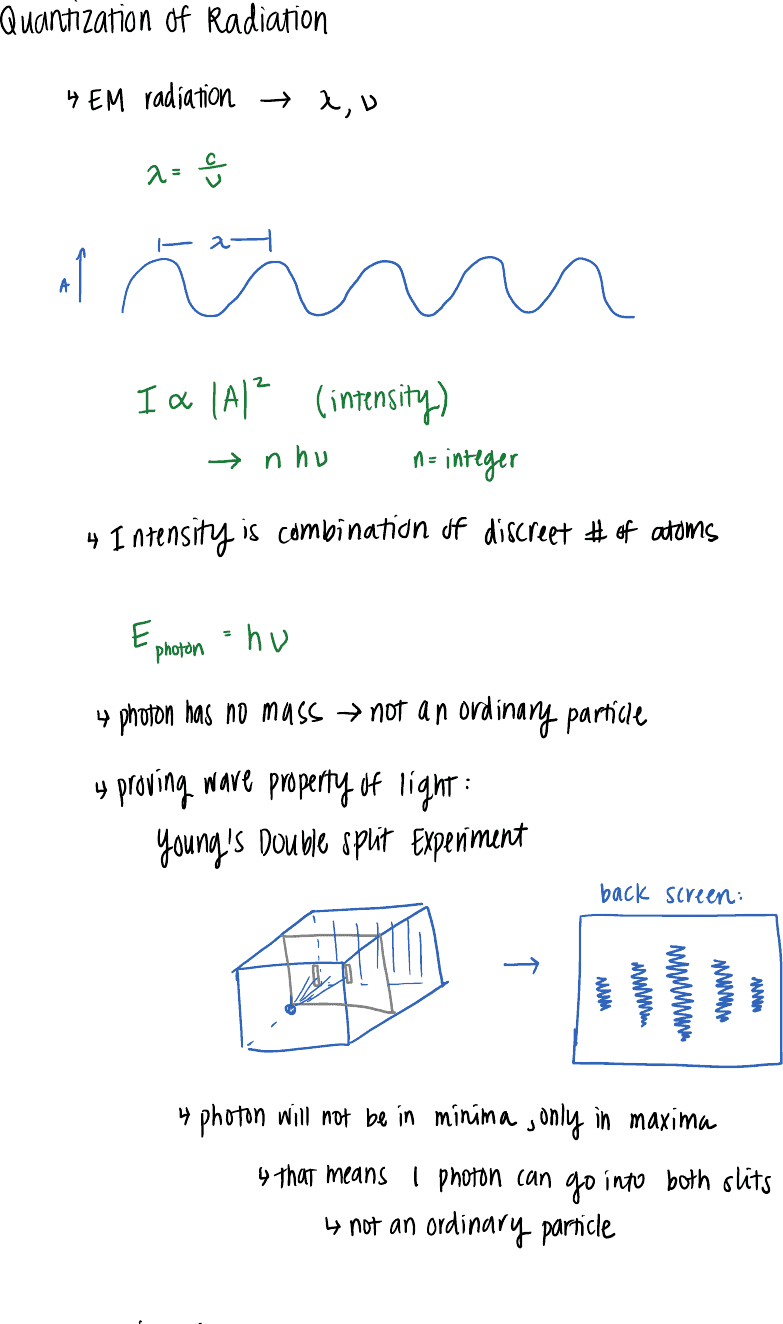 Quantization of Radiation
↳ EM radiation → λ, ν
λ = c/ν
λ
A
I ∝ |A|² (intensity)
→ n hν n = integer
↳ Intensity is combination of discreet # of atoms
E photon = hν
↳ photon has no mass → not an ordinary particle
↳ proving wave property of light:
Young's Double split Experiment
back screen:
→
↳ photon will not be in minima, only in maxima
↳ that means 1 photon can go into both slits
↳ not an ordinary particle